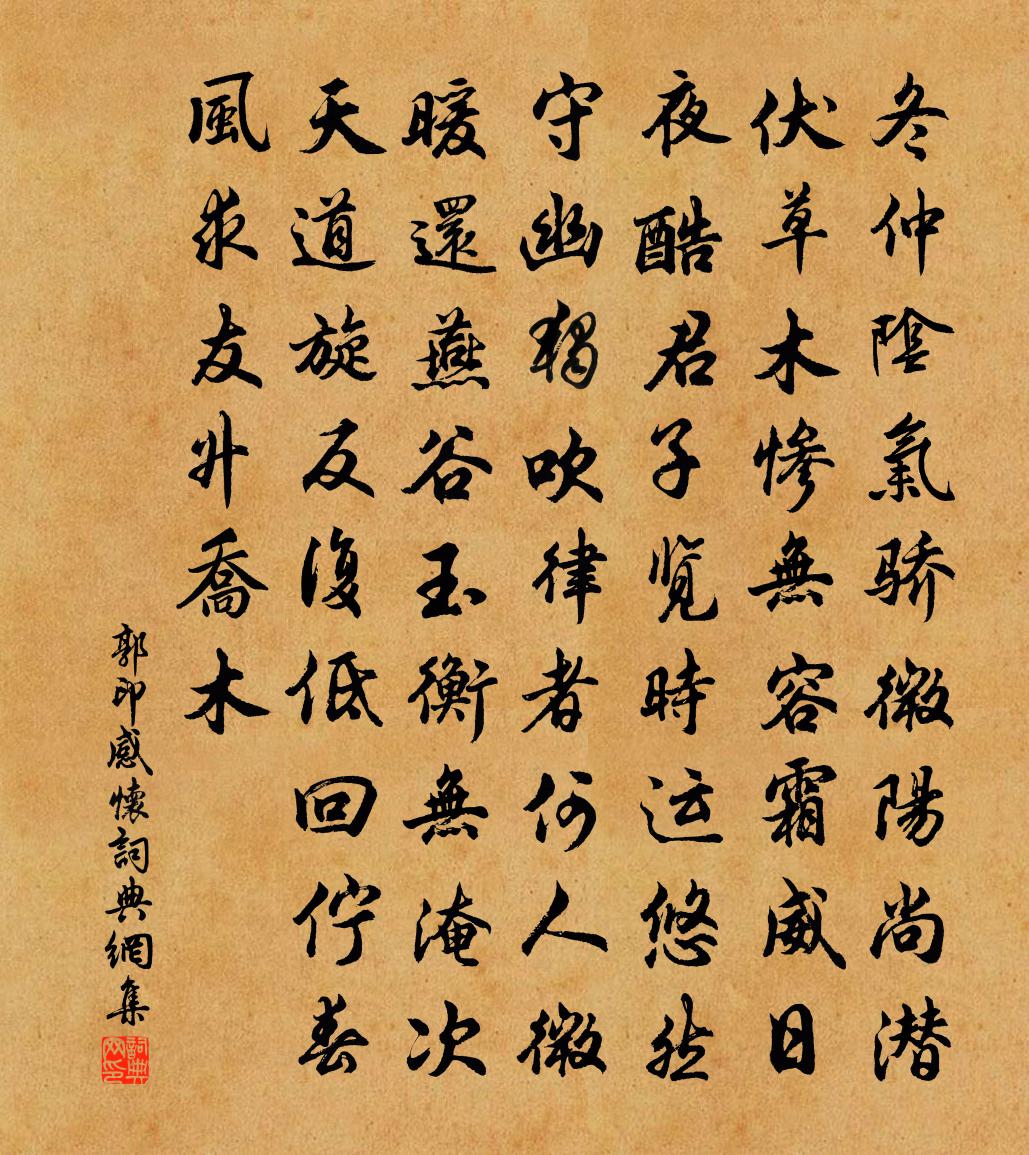 冬仲陰氣骄微陽尚潜
伏草木慘無容霜威日
夜酷君子览時运悠然
守幽獨吹律者何人微
暖還燕谷玉衡無淹次
天道旋反復低回佇春
風求友升喬木
郭印感懷詞典網集
詞典网印